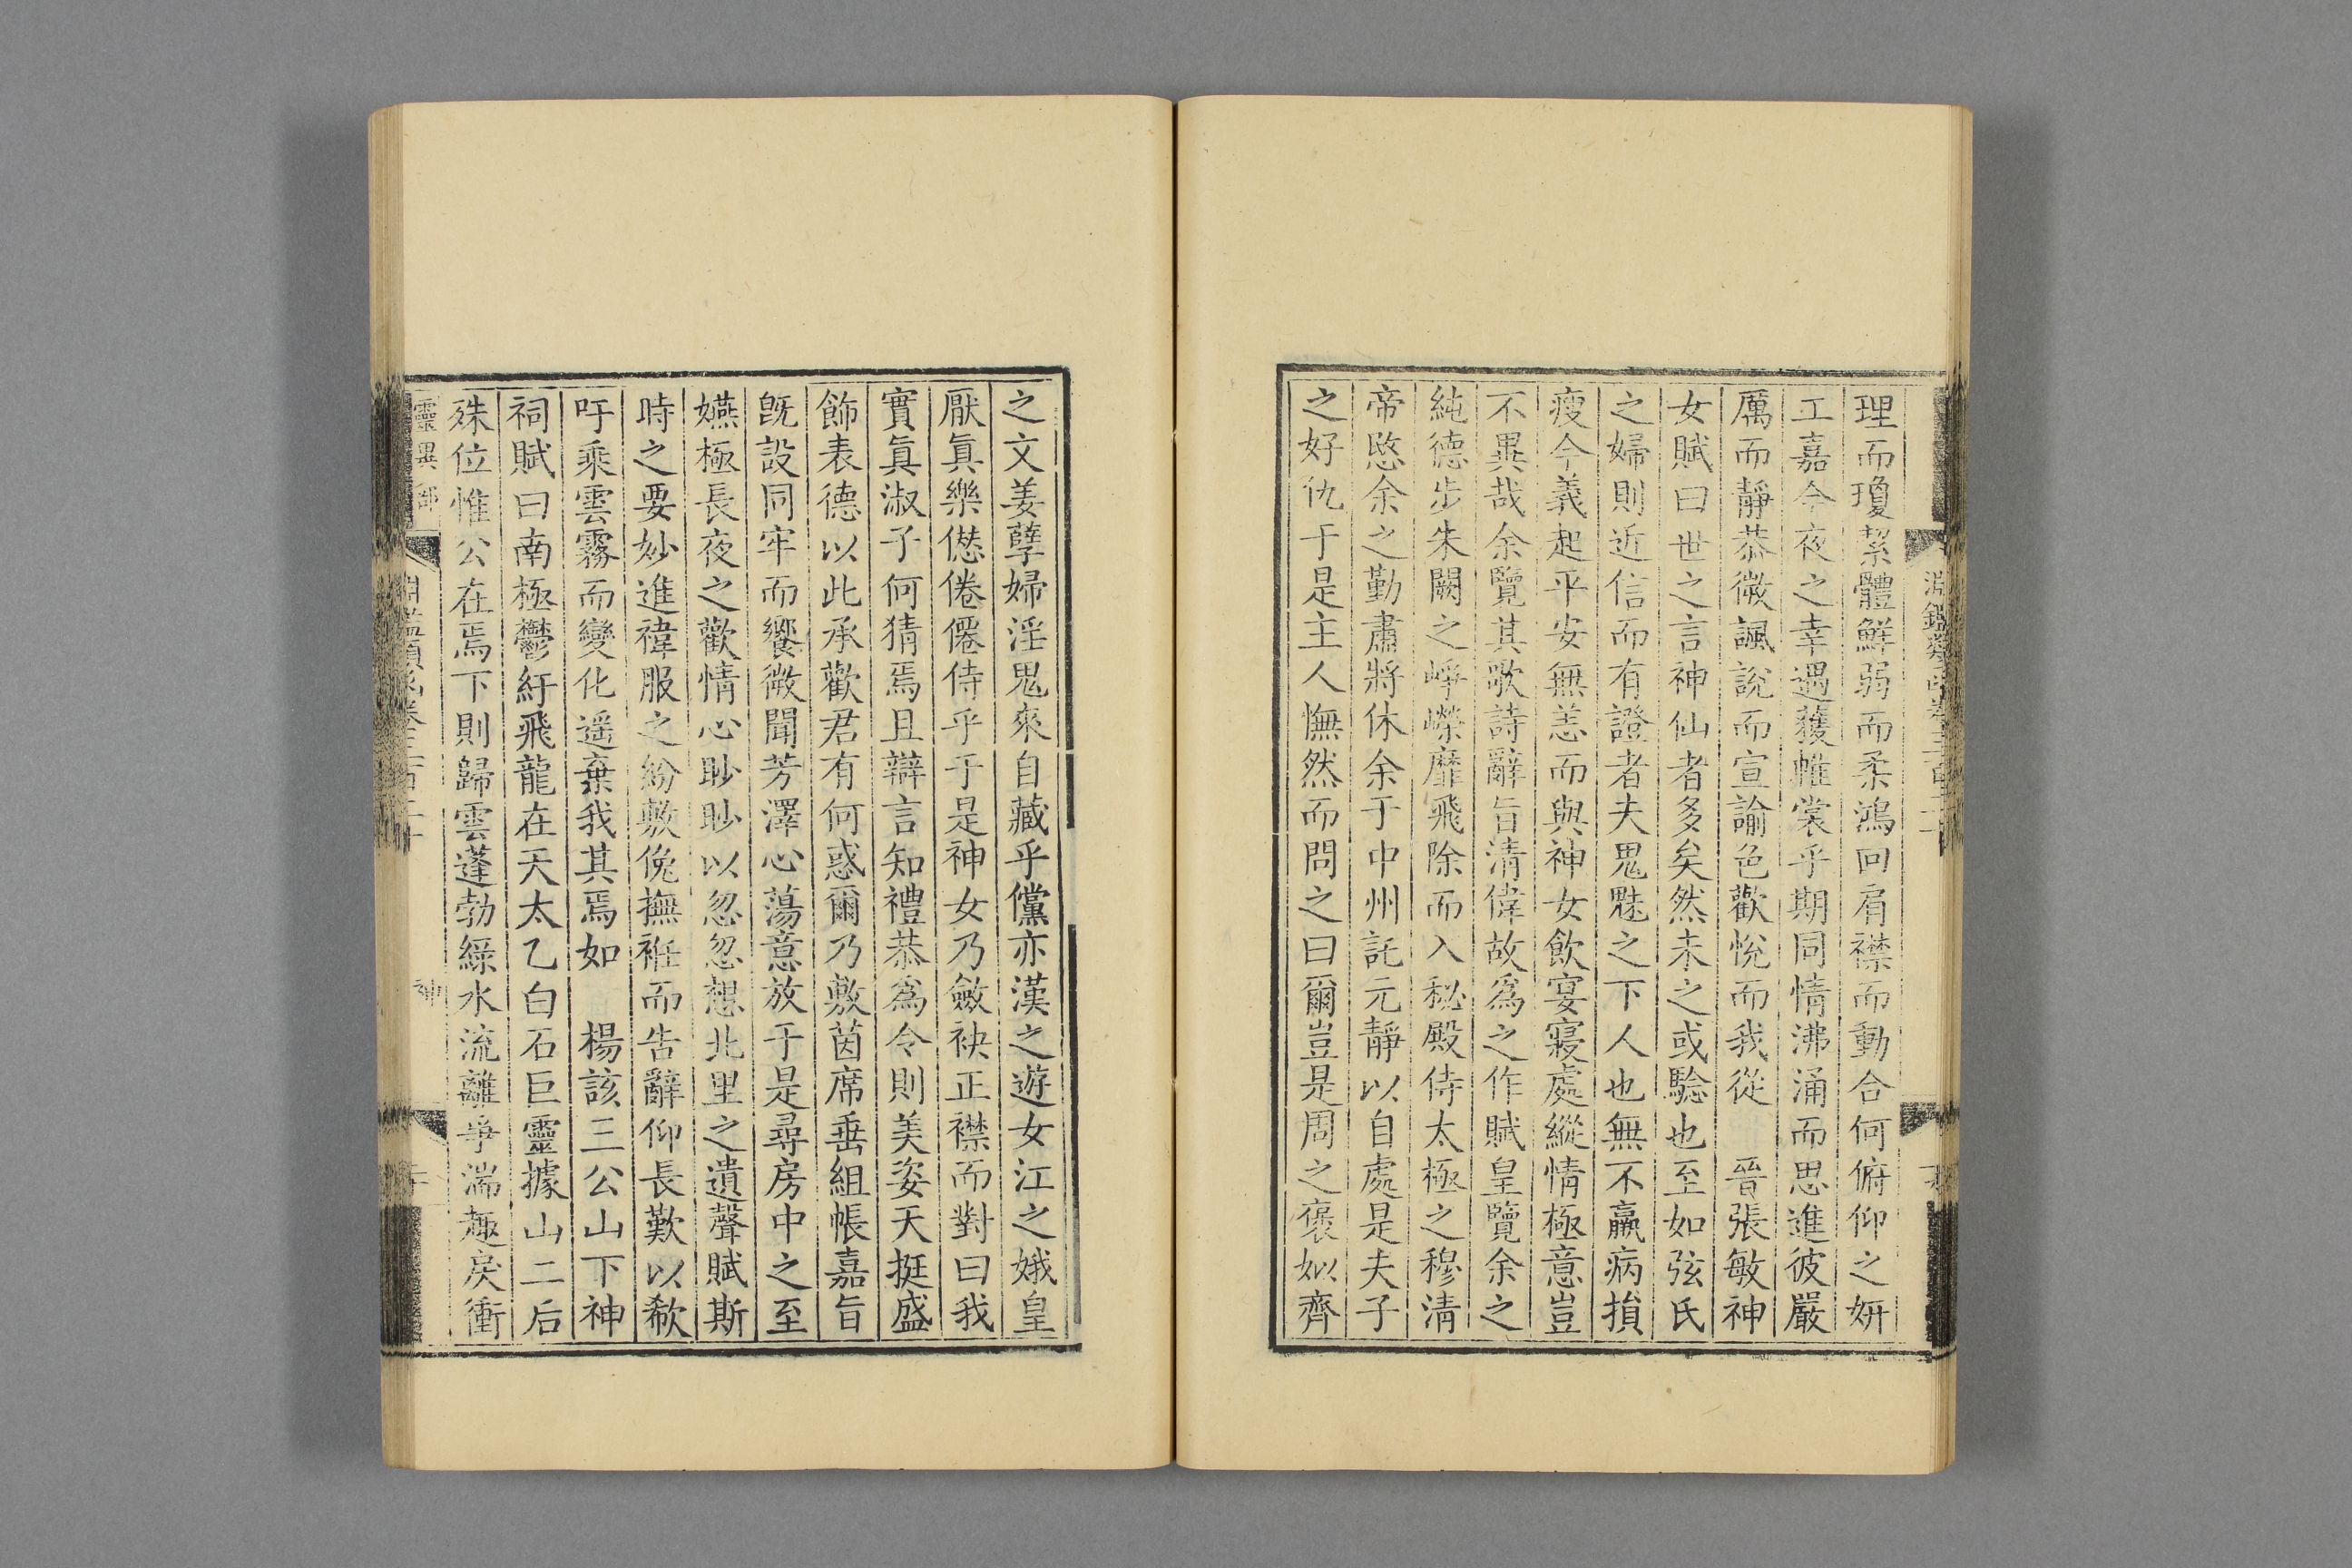 理而瓊絜體鮮弱而柔鴻回肩襟而動合何俯仰之妍
工嘉今夜之幸遇獲帷裳乎期同情沸涌而思進彼嚴
厲而靜恭微諷說而宣諭色歡悅而我從　晉張敏神
女賦曰世之言神仙者多矣然未之或驗也至如弦氏
之婦則近信而有證者夫鬼魅之下人也無不羸病損
瘦今義起平安無恙而與神女飲宴寢處縱情極意豈
不異哉余覽其歌詩辭旨清偉故為之作賦皇覽余之
純德步朱闕之崢嶸靡飛除而入秘殿侍太極之穆清
帝愍余之勤肅將休余于中州託元靜以自處是夫子
之好仇于是主人憮然而問之曰爾豈是周之褒姒齊
之文姜孽婦淫鬼來自藏乎儻亦漢之遊女江之娥皇
厭眞樂𠎝倦僊侍乎于是神女乃斂袂正襟而對曰我
實眞淑子何猜焉且辯言知禮恭為令則美姿天挺盛
飾表德以此承歡君有何惑爾乃敷茵席垂組帳嘉旨
旣設同牢而饗微聞芳澤心蕩意放于是尋房中之至
嬿極長夜之歡情心眇眇以忽忽想北里之遺聲賦斯
時之要妙進褘服之紛敷俛撫袵而告辭仰長歎以欷
吁乘雲霧而變化遥棄我其焉如　楊該三公山下神
祠賦曰南極鬱紆飛龍在天太乙白石巨靈據山二后
殊位惟公在焉下則歸雲蓬勃綠水流離爭湍趣戾衝
靈異部　神